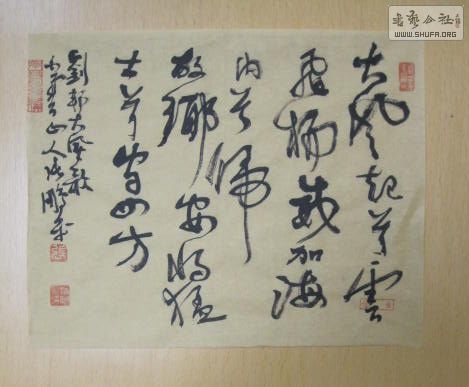 大風起兮雲
飛揚威加海
内兮歸
故鄉安得猛
士兮守四方
劉邦大風歌
山人
書藝公社
WWW.SHUFA.ORG